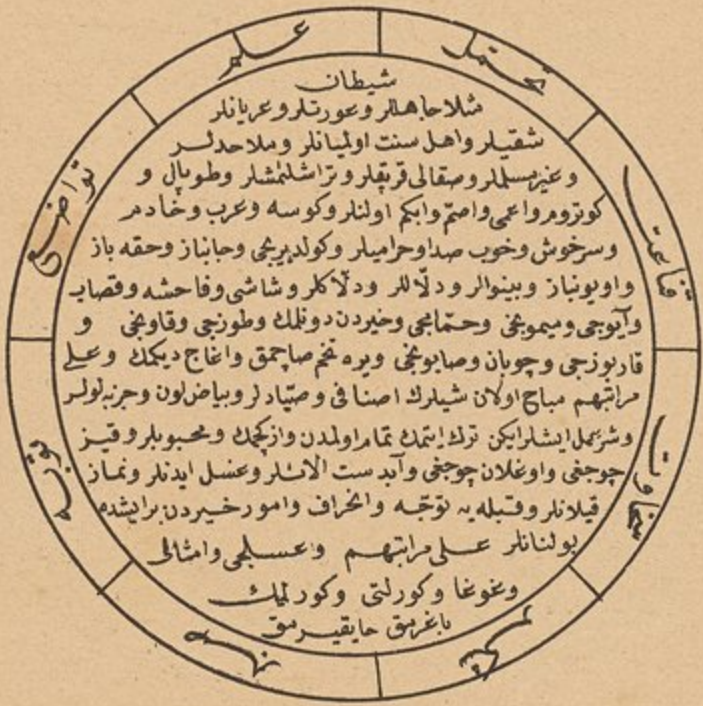 علم
تحمل
قناعت
سخاوت
شكر
توبه
تواضع
شيطان
مثلا جاهللر وعورتلر وعريانلر
شقيلر واهل سنت اولميانلر وملاحدلر
وغيرمسلملر وصقالى قرقيقلر وتراشلنمشلر وطوپال و
كوتروم واعمى واصم وابكم اولنلر وكوسه وعرب وخادم
وسرخوش وخوب صدا وحراميلر وكولديريجى وجانباز وحقه باز
واويونباز وبينوالر ودلاللر ودلاكلر وشاشى وفاحشه وقصاب
وآيوجى وميمونجى وحمامجى وخيردن دونمك وطوزجى وقاونجى و
قارپوزجى وچوپان وصابونجى ويره تخم صاچمق واغاج ديكمك وعلى
مراتبهم مباح اولان شيلرك اصنافى وصياد لر وبياض لون وحربه لولر
وشر عمل ايشلرايكن ترك ايتمك تمام اولمدن وازكچمك ومحبوبلر وقيز
چوجغى واوغلان چوجغى وآبدست آلانلر وغسل ايدنلر ونماز
قيلانلر وقبله يه توجه وانحراف وامور خيردن برايشده
بولنانلر على مراتبهم وعسلجى وامثالى
وغوغا وكورلتى وكورلمك
باغرمق حايقيرمق